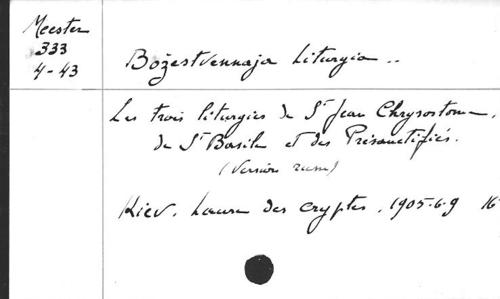 Meester
333
4-43
Božestvennaja Liturgia ..
Les trois liturgies de St Jean Chrysostome,
de St Basile et des Présanctifiés.
(Version russe)
Kiev. Laure des cryptes, 1905-6-9 16°